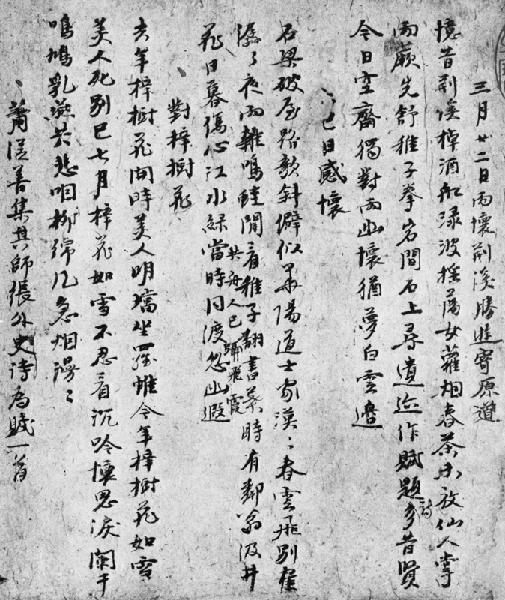 三月廿二日雨懷荊溪勝遊寄原道
憶昔荊溪棹酒舡淥波搖蕩女蘿烟春茶未放仙人掌
雨蕨先舒稚子拳宕間石上尋遺迹作賦題詩多昔賢
今日空齋獨對雨幽懷猶夢白雲邊
巳日感懷
石梁破屋路欹斜僻似華陽道士家漠〻春雲飛別崦
潺〻夜雨雜鳴蛙閒看稚子翻書葉時有鄰翁汲井
共舟人已飛霞
花日暮傷心江水綠當時同渡忽幽遐
對梓樹花
去年梓樹花開時美人明璫坐羅帷今年梓樹花如雪
美人死別已七月梓花如雪不忍看沉吟懷思淚闌干
鳴鳩乳燕共悲咽柳綿風急烟漫〻
蕭從善集其師張外史詩為賦一首